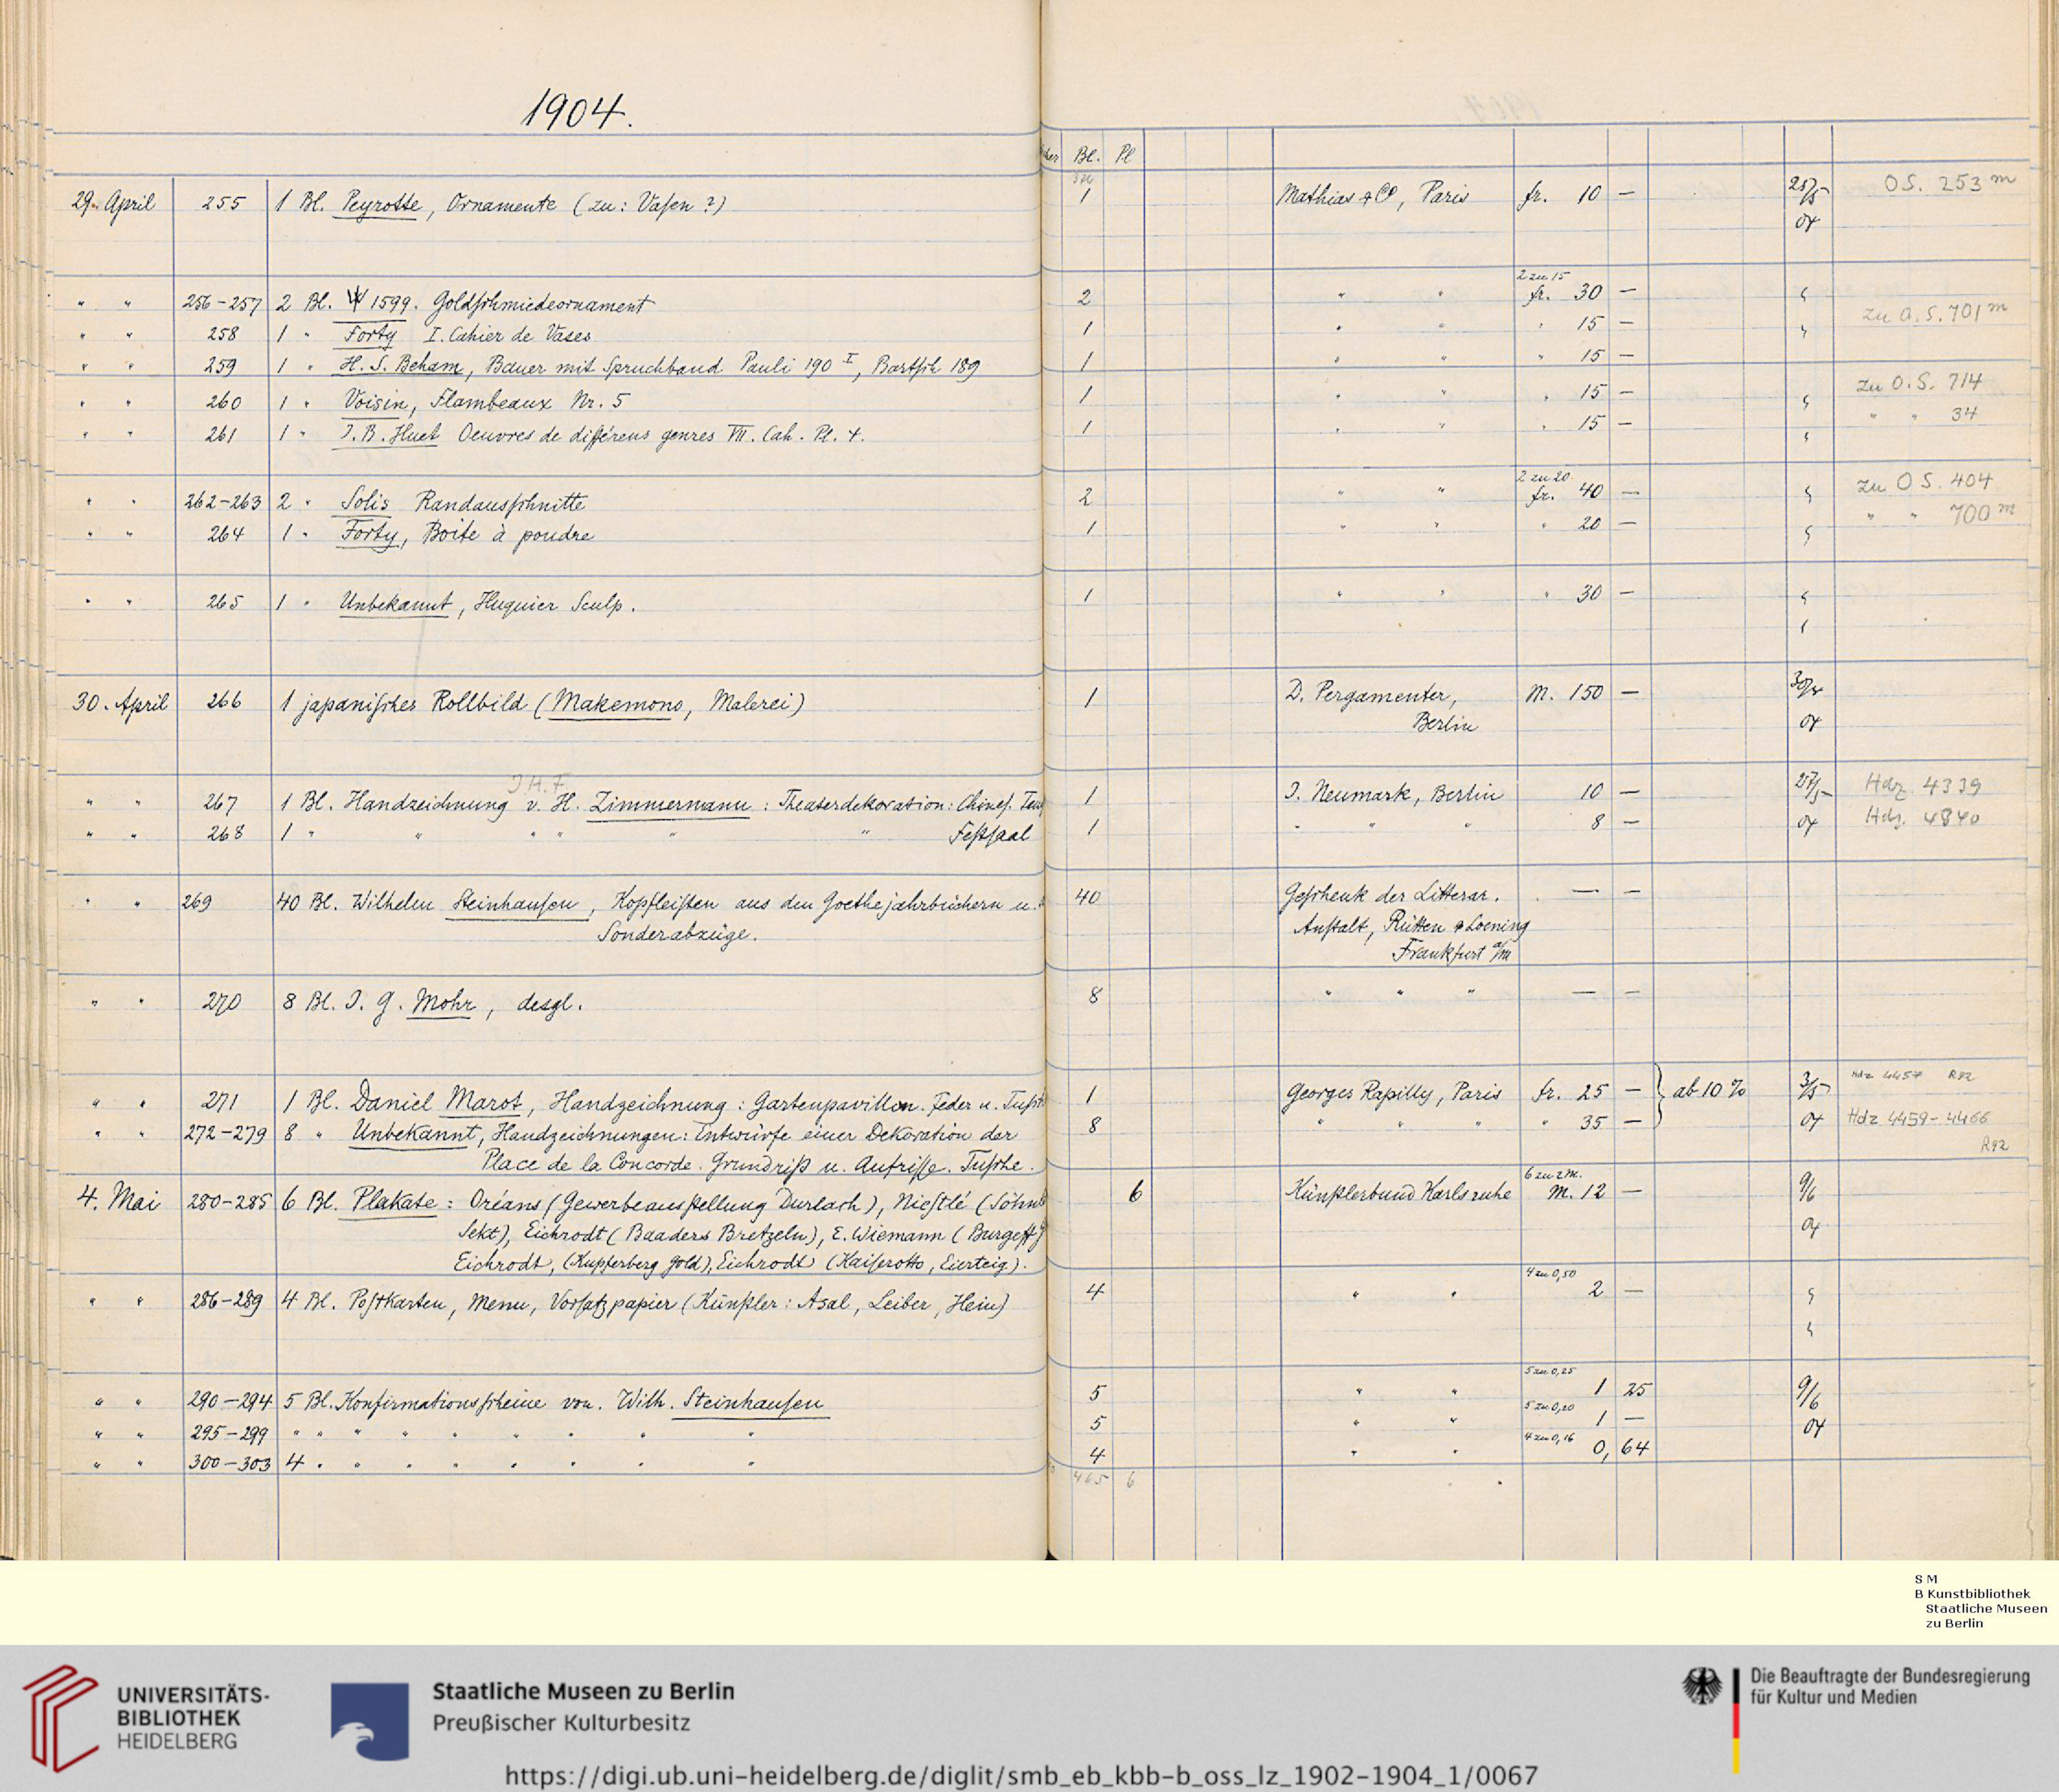 1904.
Bl. Pl
29. April 255 1 Bl. Peyrotte, Ornamente (zu: Vasen ?) 1 Mathias & Co, Paris fr. 10 — 25/5 04 O S. 253 m
" " 256–257 2 Bl. 1599. Goldschmiedeornament 2 " " 2 zu 15 fr. 30 —
" " 258 1 " Forty I. Cahier de Vases 1 " " " 15 — zu O.S. 701 m
" " 259 1 " H. S. Beham, Bauer mit Spruchband Pauli 190 I, Bartsch 189 1 " " " 15 —
" " 260 1 " Voisin, Flambeaux Nr. 5 1 " " " 15 — zu O.S. 714
" " 261 1 " J. B. Huet Oeuvres de différens genres VII. Cah. Pl. 4. 1 " " " 15 — " " 34
" " 262–263 2 " Solis Randausschnitte 2 " " 2 zu 20 fr. 40 — zu O S. 404
" " 264 1 " Forty, Boite à poudre 1 " " " 20 — " " 700 m
" " 265 1 " Unbekannt, Huquier Sculp. 1 " " " 30 —
30. April 266 1 japanisches Rollbild (Makemono, Malerei) 1 D. Pergamenter, M. 150 — 30/4
Berlin 04
J H. F
" " 267 1 Bl. Handzeichnung v. H. Zimmermann: Theaterdekoration: Chines. 1 J. Neumark, Berlin 10 — 25/5 Hdz. 4339
" " 268 1 " " " " " " Festsaal 1 " " " 8 — 04 Hdz. 4840
" " 269 40 Bl. Wilhelm Steinhausen, Kopfleisten aus den Goethejahrbüchern u. 40 Geschenk der Litterar. — —
Sonderabzüge. Anstalt, Rütten & Loening
Frankfurt a/m
" " 270 8 Bl. J. G. Mohr, desgl. 8 " " " — —
" " 271 1 Bl. Daniel Marot, Handzeichnung: Gartenpavillon. Feder u. Tusche 1 Georges Rapilly, Paris fr. 25 — } ab 10 % 3/5 Hdz 4457 R92
" " 272–279 8 " Unbekannt, Handzeichnungen: Entwürfe einer Dekoration der 8 " " " " 35 — 04 Hdz 4459–4466
Place de la Concorde. Grundriß u. Aufrisse. Tusche. R92
4. Mai 280–285 6 Bl. Plakate: Oréans (Gewerbeausstellung Durlach), Niestlé (Söhnlein 6 Künstlerbund Karlsruhe 6 zu 2 M. M. 12 — 9/6
Sekt), Eichrodt (Baaders Bretzeln), E. Wiemann (Burgeff 04
Eichrodt, (Kupferberg Gold), Eichrodt (Kaiserotto, Eierteig).
" " 286–289 4 Bl. Postkarten, Menu, Vorsatzpapier (Künstler: Asal, Leiber, Hein) 4 " " 4 zu 0,50 2 —
" " 290–294 5 Bl. Konfirmationsscheine von. Wilh. Steinhausen 5 " " 5 zu 0,25 1 25 9/6
" " 295–299 " " " " " " " " " 5 " " 5 zu 0,20 1 — 04
" " 300–303 4 " " " " " " " " 4 " " 4 zu 0,16 0, 64
465 6
S M
B Kunstbibliothek
Staatliche Museen
zu Berlin
UNIVERSITÄTS-
BIBLIOTHEK
HEIDELBERG
Staatliche Museen zu Berlin
Preußischer Kulturbesitz
Die Beauftragte der Bundesregierung
für Kultur und Medien
https://digi.ub.uni-heidelberg.de/diglit/smb_eb_kbb-b_oss_lz_1902-1904_1/0067